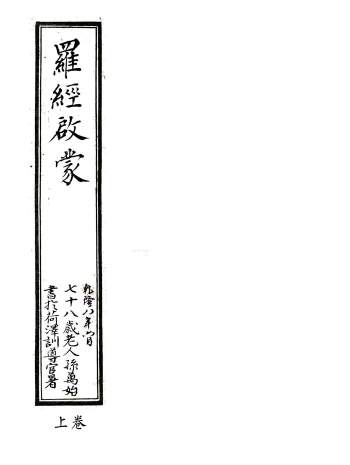 羅經啟蒙
乾隆八年六月
七十八歲老人孫萬始
書於荷澤訓導官署
卷上